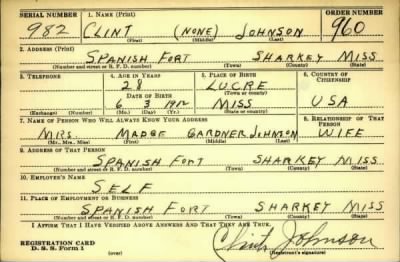 SERIAL NUMBER 1. NAME (Print) ORDER NUMBER
982 CLINT (NONE) JOHNSON 960
(First) (Middle) (Last)
2. ADDRESS (Print)
SPANISH FORT SHARKEY MISS
(Number and street or R. F. D. number) (Town) (County) (State)
3. TELEPHONE 4. AGE IN YEARS 5. PLACE OF BIRTH 6. COUNTRY OF CITIZENSHIP
28 LUCRE
DATE OF BIRTH (Town or county)
6 3 1912 MISS USA
(Exchange) (No.) (Mo.) (Day) (Yr.) (State or country)
7. NAME OF PERSON WHO WILL ALWAYS KNOW YOUR ADDRESS 8. RELATIONSHIP OF THAT PERSON
MRS. MADGE GARDNER JOHNSON WIFE
(Mr., Mrs., Miss) (First) (Middle) (Last)
9. ADDRESS OF THAT PERSON
SPANISH FORT SHARKEY MISS
(Number and street or R. F. D. number) (Town) (County) (State)
10. EMPLOYER'S NAME
SELF
11. PLACE OF EMPLOYMENT OR BUSINESS
SPANISH FORT SHARKEY MISS
(Number and street or R. F. D. number) (Town) (County) (State)
I AFFIRM THAT I HAVE VERIFIED ABOVE ANSWERS AND THAT THEY ARE TRUE.
Clint Johnson
REGISTRATION CARD
D. S. S. Form 1 (over) (Registrant's signature)